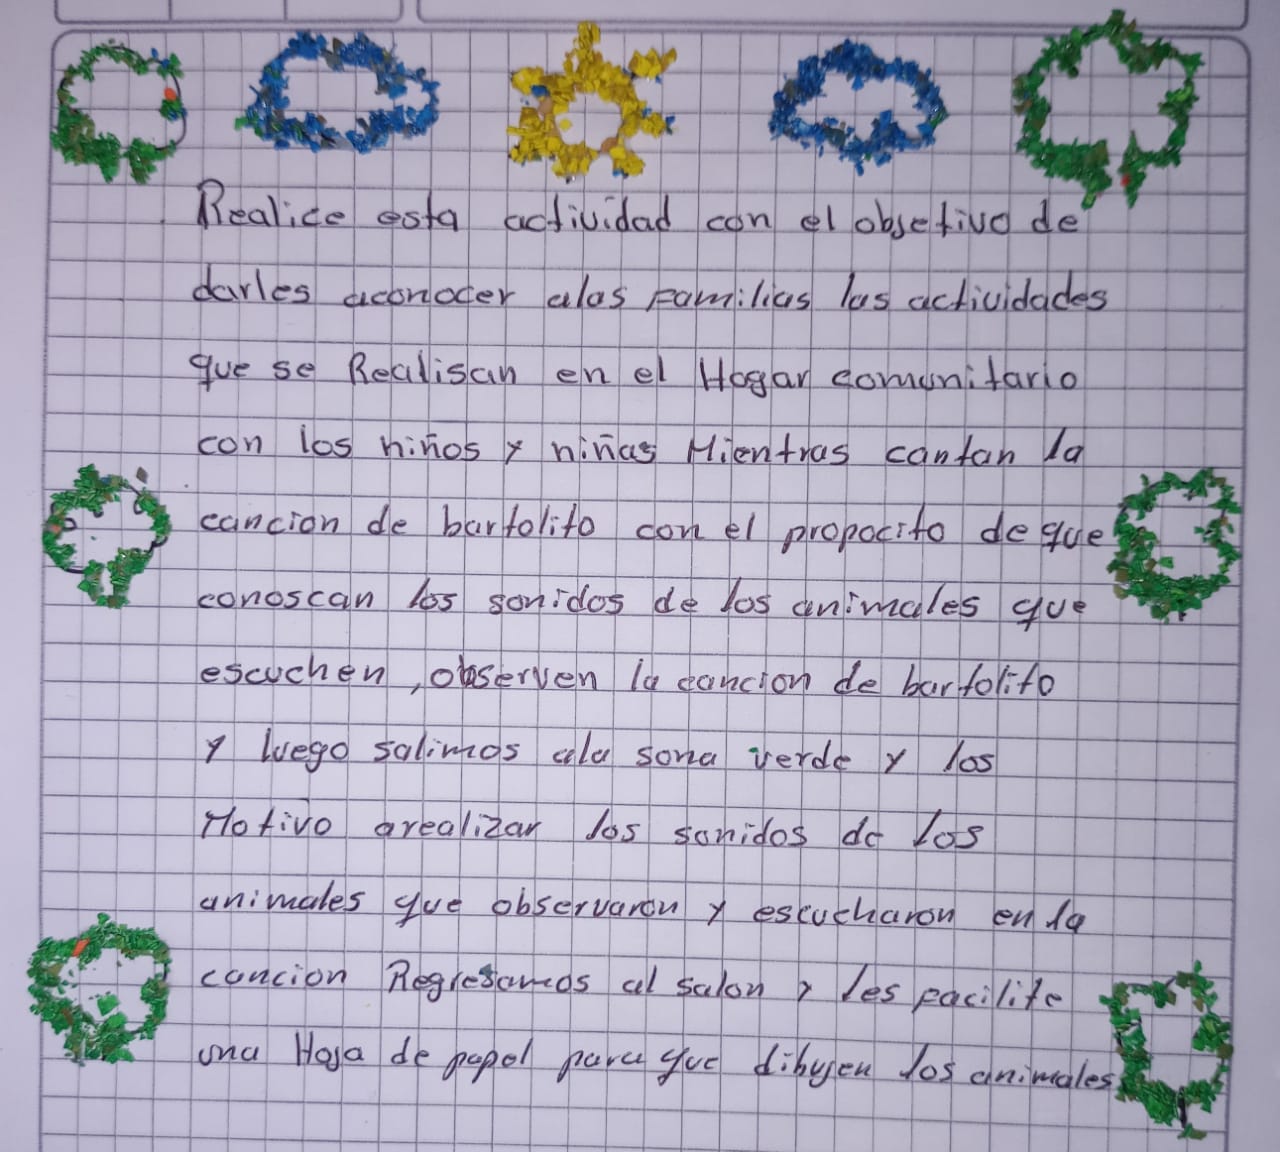 Realice esta actividad con el objetivo de
darles aconocer alas Familias las actividades
que se Realisan en el Hogar comunitario
con los niños y niñas Mientras cantan la
cancion de bartolito con el propocito de que
conoscan los sonidos de los animales que
escuchen, observen la cancion de bartolito
y luego salimos ala sona verde y los
Motivo arealizar los sonidos de los
animales que observaron y escucharon en la
cancion Regresamos al salon y les facilite
una Hoja de papel para que dibujen los animales